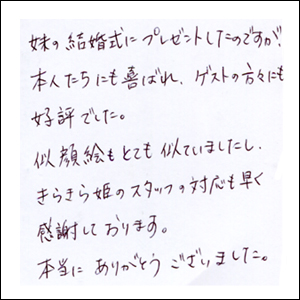 妹の結婚式にプレゼントしたのですが、
本人たちにも喜ばれ、ゲストの方々にも
好評でした。
似顔絵もとても似ていましたし、
きらきら姫のスタッフの対応も早く
感謝しております。
本当にありがとうございました。